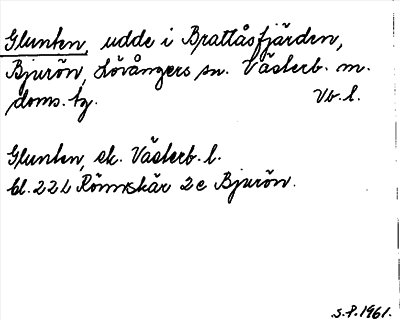 Glunten, udde i Brattåsfjärden,
Bjurön, Lövångers sn. Västerb. m.
doms. tg. Vb. l.
Glunten, sk. Västerb. l.
bl. 22 L Rönnskär 2e Bjurön.
S.P. 1961.